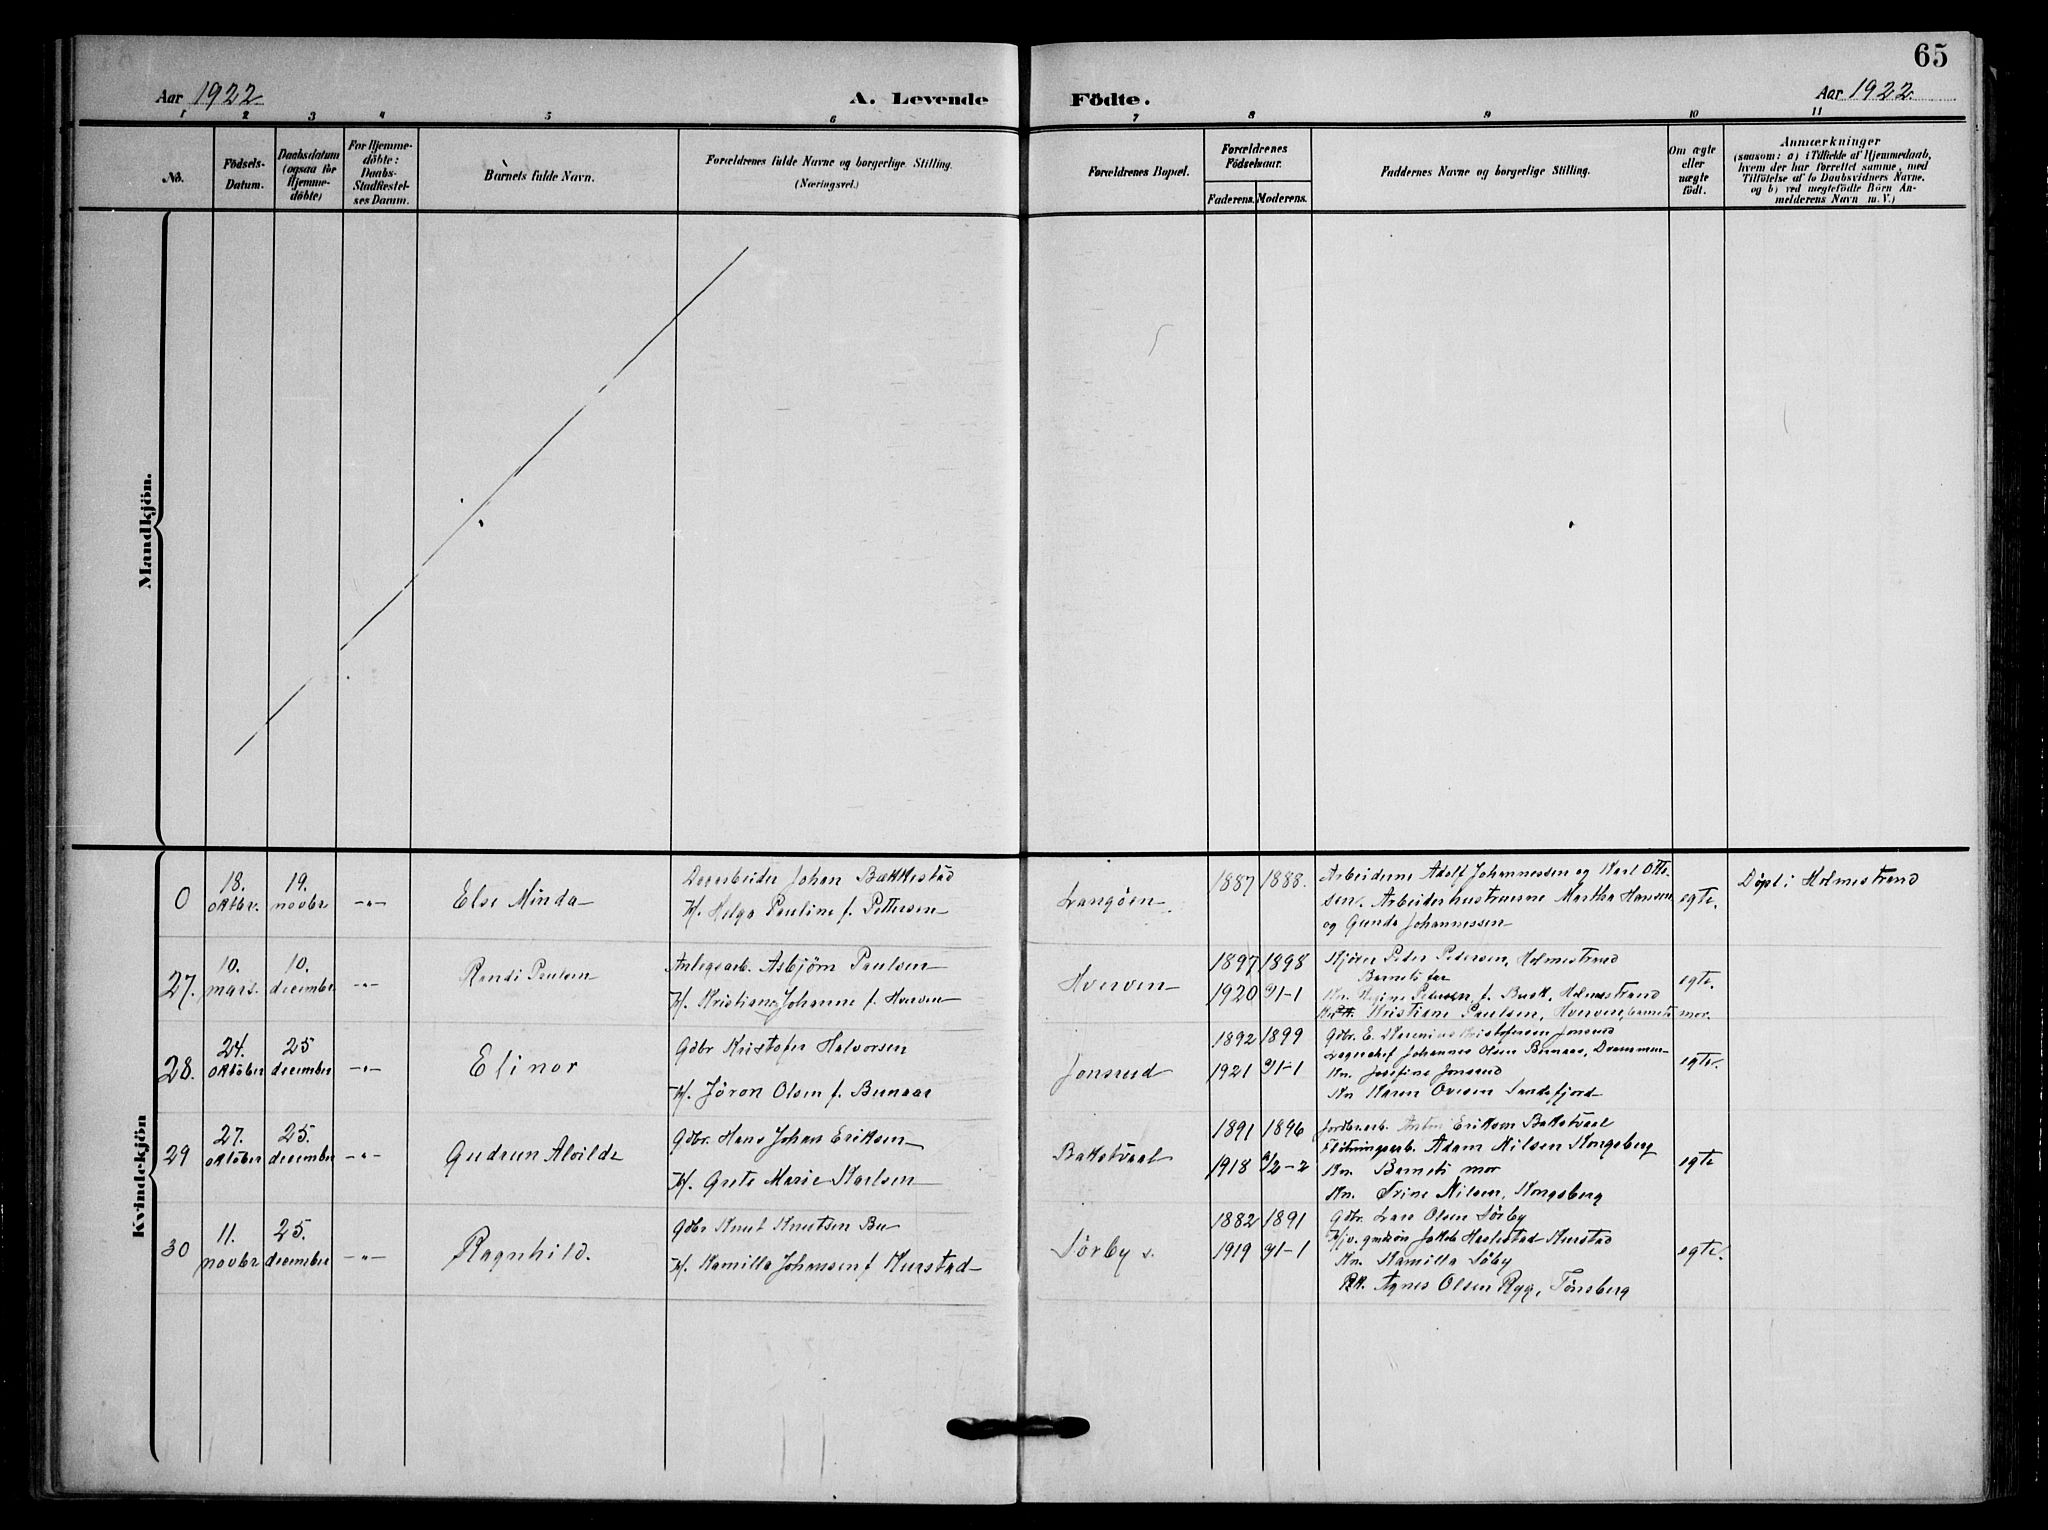 65
Aar 1922. A. Levende Födte. Aar 1922.
1 2 3 4 5 6 7 8 9 10 11
No.
Födsels-
Datum.
Daabsdatum
(ogsaa for
Hjemme-
döbte)
For Hjemme-
döbte:
Daabs-
Stadfæstel-
ses Datum.
Barnets fulde Navn.
Forældrenes fulde Navne og borgerlige Stilling.
(Næringsvei.)
Forældrenes Bopæl.
Forældrenes
Födselsaar.
Faderens. Moderens.
Faddernes Navne og borgerlige Stilling.
Om ægte
eller
uægte
födt.
Anmærkninger
(saasom: a) i Tilfælde af Hjemmedaab,
hvem der har forrettet samme, med
Tilföielse af to Daabsvidners Navne,
og b) ved uægtefödte Börn An-
melderens Navn m. V.)
Mandkjön.
Kvindekjön
0
18.
oktbr.
19.
novbr
-"-
Else Minda
Johan Bækkestad
H. Helga Pauline f. Pettersen
Langöen
1887 1888.
Arbeiderne Adolf Johannessen og Karl Ott-
sen. Arbeiderhustruerne Martha Hansen
og Gunda Johannessen
egte.
Döpt i Holmestrand
27.
10.
mars.
10.
december
-"-
Randi Paulsen
Anlegsarb. Asbjörn Paulsen
H. Kristiane Johanne f. Hverven
Hverven
1897 1898
1920 91-1
Peder Pedersen, Holmestrand
Barnets far
Kn. Pedersen f. Busk, Holmestrand
Kristiane Paulsen, Hverven, barnets mor.
egte.
28.
24.
oktober
25
december
-"-
Elinor
Gdbr Kristofer Halvorsen
H. Jöron Olsen f. Bernaas
Jonsrud
1892 1899
1921 91-1
Gdbr. E. Kristofersen Jonsrud
Lagerchef Johannes Olsen Bernaas, Drammen
Kn. Josefine Jonsrud
Kn Karen Ovesen Sandefjord
egte.
29
27.
oktober
25.
december
-"-
Gudrun Alvilde
Gdbr. Hans Johan Eriksen
H. Grete Marie Karlsen
Bakstvaal
1891 1896
1918 2-2
Jordbr.arb. Eriksen Bakstvaal
Flötningsarb. Adam Nilsen Kongsberg
Kn. Barnets mor
Kn. Trine Nilsen, Kongsberg
egte
30
11.
novbr
25.
december
-"-
Ragnhild.
Gdbr Knut Knutsen Bu
H. Kamilla Johansen f Kurstad
Sörby s.
1882 1891
1919 91-1
Gdbr. Lars Olsen Sörby
Jakob Kurstad
Kn. Kamilla Söby
Pk. Agnes Olsen Ryg, Tönsberg
egte.